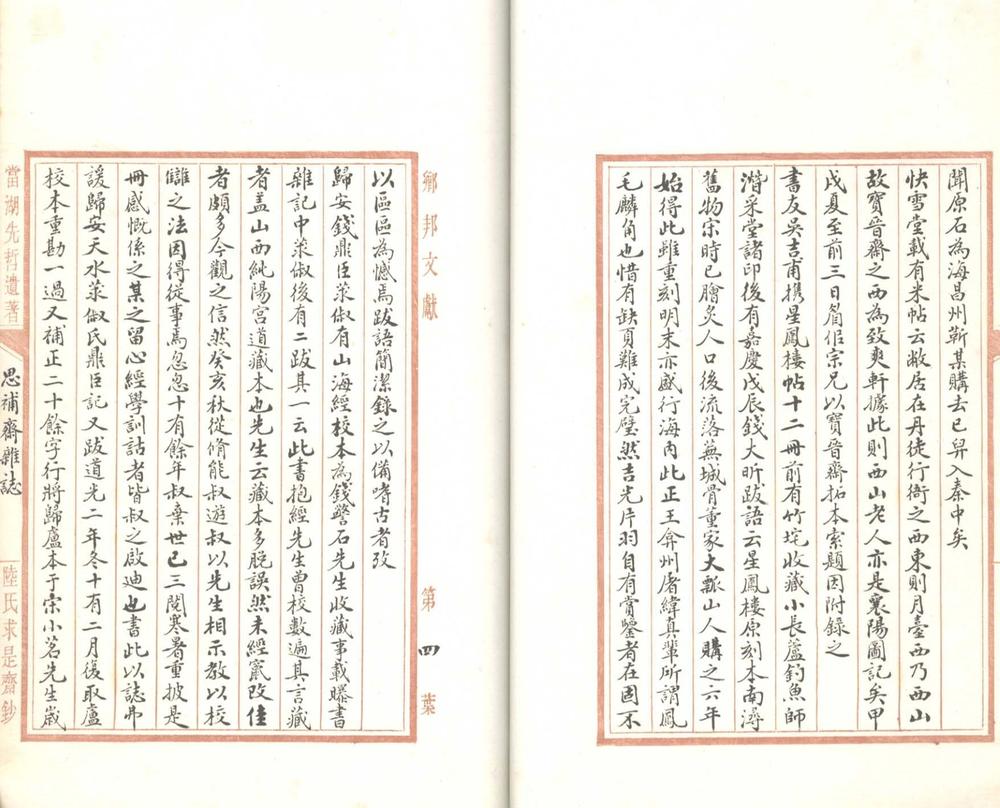 聞原石為海昌州蔪某購去已舁入秦中矣
快雪堂載有米帖云敝居在丹徒行衙之西東則月臺西乃西山
故寶晉齋之西為致爽軒據此則西山老人亦是襄陽圖記矣甲
戌夏至前三日眉佀宗兄以寶晉齋拓本索題因附錄之
書友吳吉甫攜星鳳樓帖十二冊前有竹垞收藏小長蘆釣魚師
潛采堂諸印後有嘉慶戊辰錢大昕跋語云星鳳樓原刻本南潯
舊物宋時已膾炙人口後流落蕪城骨董家大瓢山人購之六年
始得此雖重刻明末亦盛行海內此正王弇州屠緯真輩所謂鳳
毛麟角也惜有缺頁難成完璧然吉光片羽自有賞鑒者在固不
鄉邦文獻
第四葉
以區區為憾焉跋語簡潔錄之以備嗜古者攷
歸安錢鼎臣萗俶有山海經校本為錢警石先生收藏事載曝書
雜記中萗俶後有二跋其一云此書抱經先生曾校數遍其言藏
者盖山西純陽宮道藏本也先生云藏本多脫誤然未經竄改佳
者頗多今觀之信然癸亥秋從脩能叔遊叔以先生相示教以校
讎之法因得從事焉忽忽十有餘年叔棄世已三閱寒暑重披是
冊感慨係之某之留心經學訓詁者皆叔之啟迪也書此以誌弗
諼歸安天水萗俶氏鼎臣記又跋道光二年冬十有二月復取盧
校本重勘一過又補正二十餘字行將歸盧本于宋小茗先生嵗
當湖先哲遺著
思補齋雜誌
陸氏求是齋鈔